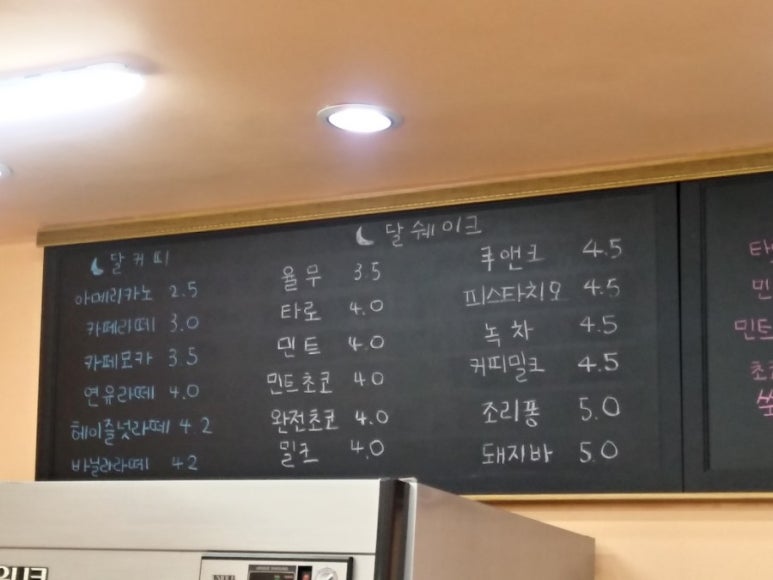 달커피
아메리카노 2.5
카페라떼 3.0
카페모카 3.5
연유라떼 4.0
헤이즐넛라떼 4.2
바닐라라떼 4.2
달쉐이크
율무 3.5
타로 4.0
민트 4.0
민트초코 4.0
완전초코 4.0
밀크 4.0
쿠앤크 4.5
피스타치오 4.5
녹차 4.5
커피밀크 4.5
조리퐁 5.0
돼지바 5.0
민트